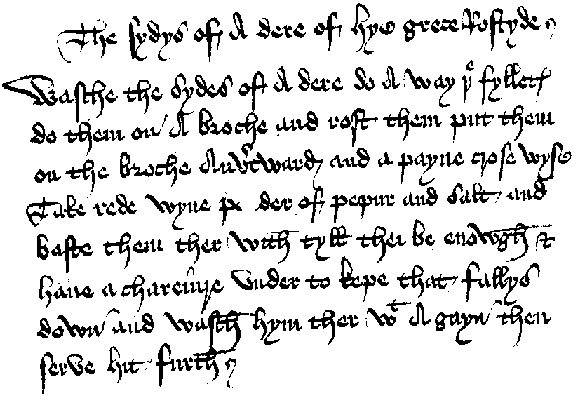 The sydys of A dere of hye grece Rostyde
Wasche the sydes of A dere do A way þe fylletes
do them on A broche and rost them put them
on the broche Au'twarde and a payne crose wyse
Take rede wyne p der of pepur and salt and
baste them ther with tyll thei be enowgh &
haue a chareiure vnder to kepe that fallys
down and wasch hym ther wt A gayn then
serve hit furth